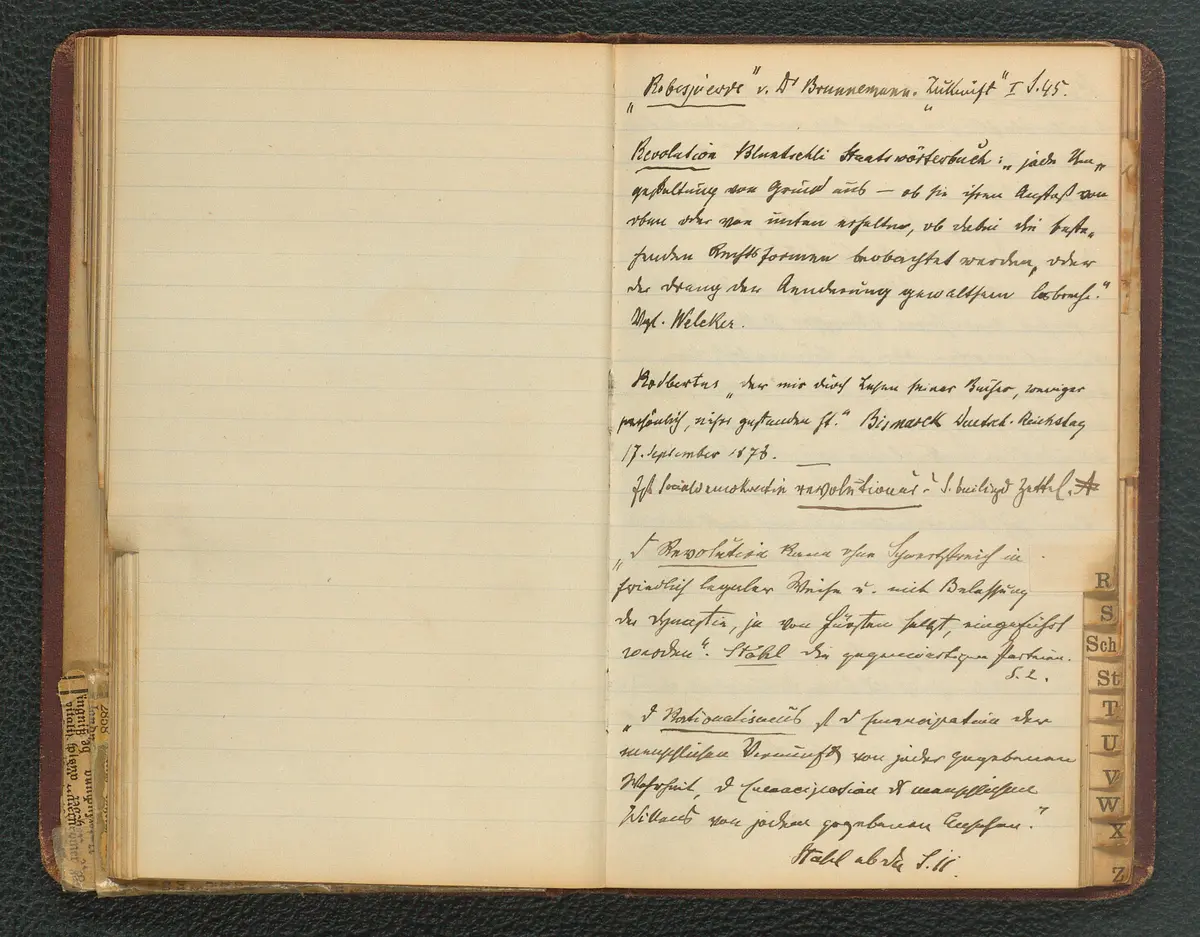 „Robespierre" v. Dr Brunnemann. „Zukunft" I S. 45.
Revolution Bluntschli Staatswörterbuch: „jede Um„
gestaltung von Grund aus — ob sie ihren Anstoß von
oben oder von unten erhalten, ob dabei die beste„
henden Rechtsformen beobachtet werden, oder
der Drang der Aenderung gewaltsam losbreche."
Vgl. Welcker.
Rodbertus „der mir durch Lesen seiner Bücher, weniger
persönlich, näher gestanden ist." Bismarck Deutsch. Reichstag
17. September 1878.
Ist Socialdemokratie revolutionär? S. beiliegd Zettel. A
„d Revolution kann ohne Schwertstreich in
friedlich legaler Weise u. mit Belassung
der Dynastie, ja von Fürsten selbst, eingeführt
werden". Stahl die gegenwärtigen Parteien.
S. 2.
„d Rationalismus ist d Emancipation der
menschlichen Vernunft von jeder gegebenen
Wahrheit, d Emancipation d menschlichen
Willens von jedem gegebenen Ansehen."
Stahl ebda S. 11.
R
S
Sch
St
T
U
V
W
X
Z